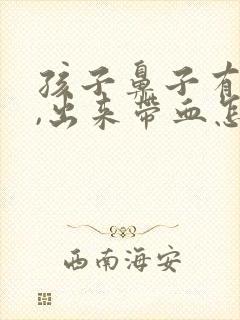 孩子鼻子有
,出来带血怎
西南海安